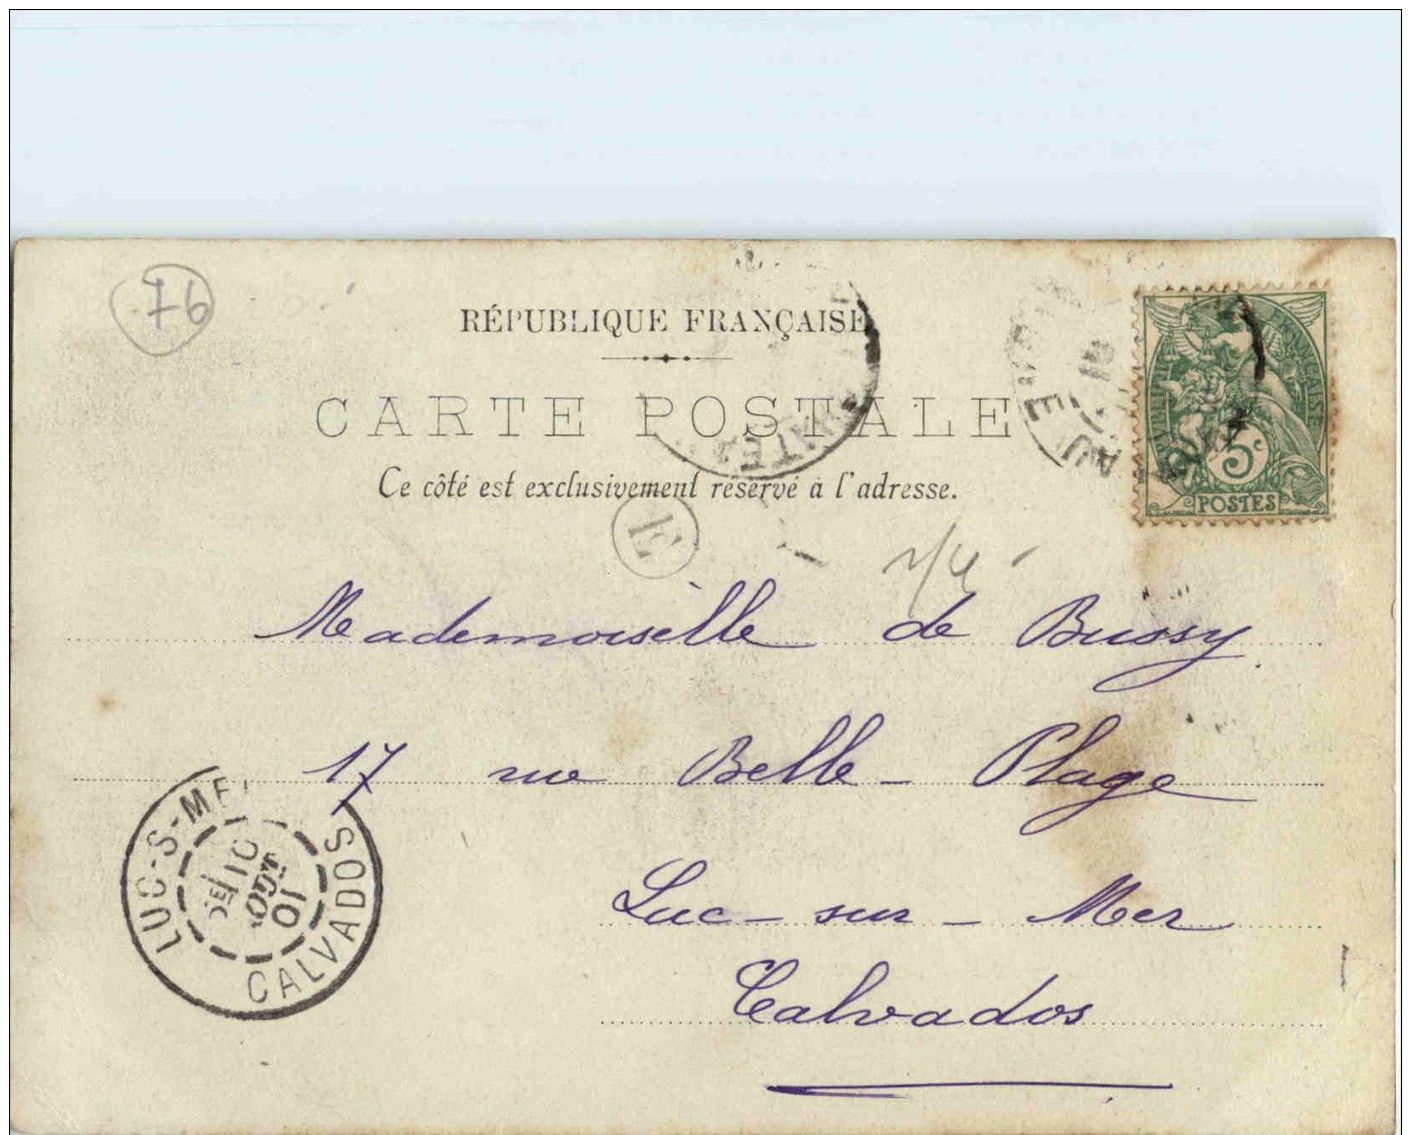 76
RÉPUBLIQUE FRANÇAISE
CARTE POSTALE
Ce côté est exclusivement réservé à l'adresse.
5c
POSTES
E
Mademoiselle de Bussy
17 rue Belle-Plage
Luc-sur-Mer
Calvados
LUC-S-MER
10
AOUT
01
CALVADOS